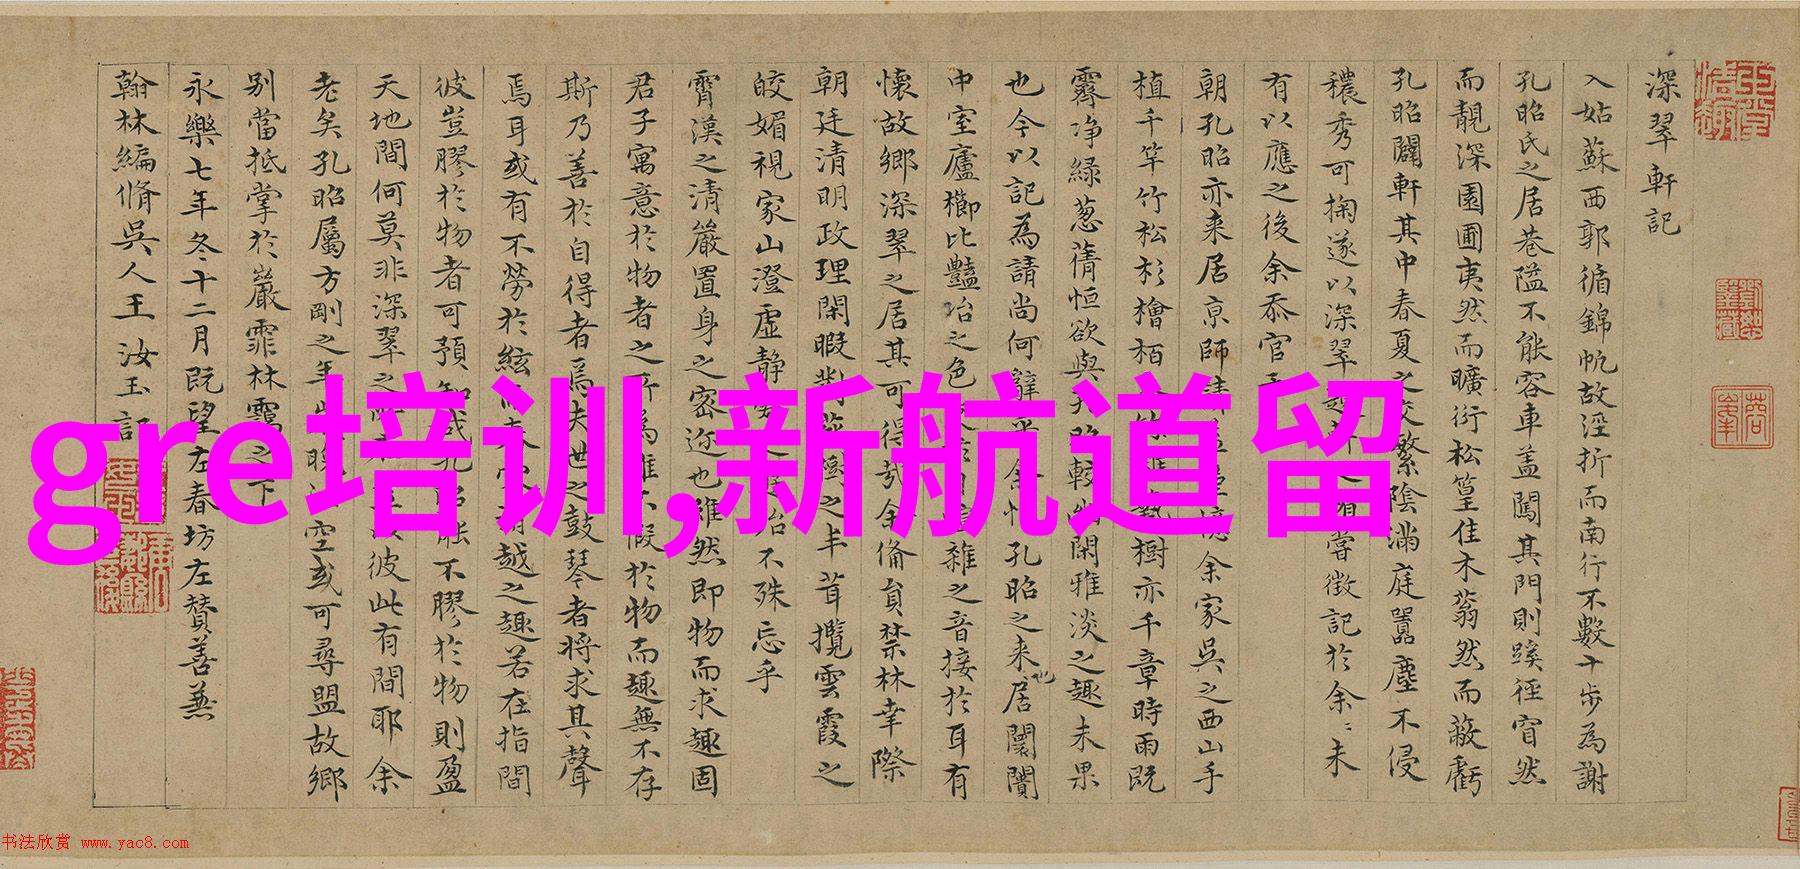 深翠軒記
入姑蘇西郭循錦帆故涇折而南行不數十步為謝
孔昭氏之居巷隘不能容車蓋闖其門則蹊徑窅然
而靚深園圃夷然而曠衍松篁佳木蓊然而蔽虧
孔昭闢軒其中春夏之交繁陰滿庭囂塵不侵
穠秀可掬遂以深翠嘗徵記於余余未
有以應之後余忝官
朝孔昭亦来居京師余家吳之西山手
植千竿竹松杉檜栢樹亦千章時雨既
霽净緑葱蒨恒欲與較幽閑雅淡之趣未果
也今以記為請尚何孔昭之来居也闤闠
中室廬櫛比豔冶之色雜之音接於耳有
懷故鄉深翠之居其可得哉余備員禁林幸際
朝廷清明政理閑暇之半首攬雲霞之
皎媚視家山澄虚静不殊忘乎
霄漢之清嚴置身之密迩也雖然即物而求趣固
君子寓意於物者之所為雖不假於物而趣無不存
斯乃善於自得者焉夫世之鼓琴者將求其聲
焉耳或有不勞於絃越之趣若在指間
彼豈膠於物者可預不膠於物則盈
天地間何莫非深翠之彼此有間耶余
老矣孔昭屬方剛之年空或可尋盟故鄉
别當抵掌於巖霏林靄之下
永樂七年冬十二月既望左春坊左贊善兼
翰林編脩吳人王汝玉記
gre培训,新航道留
书法欣赏 www.yac8.com